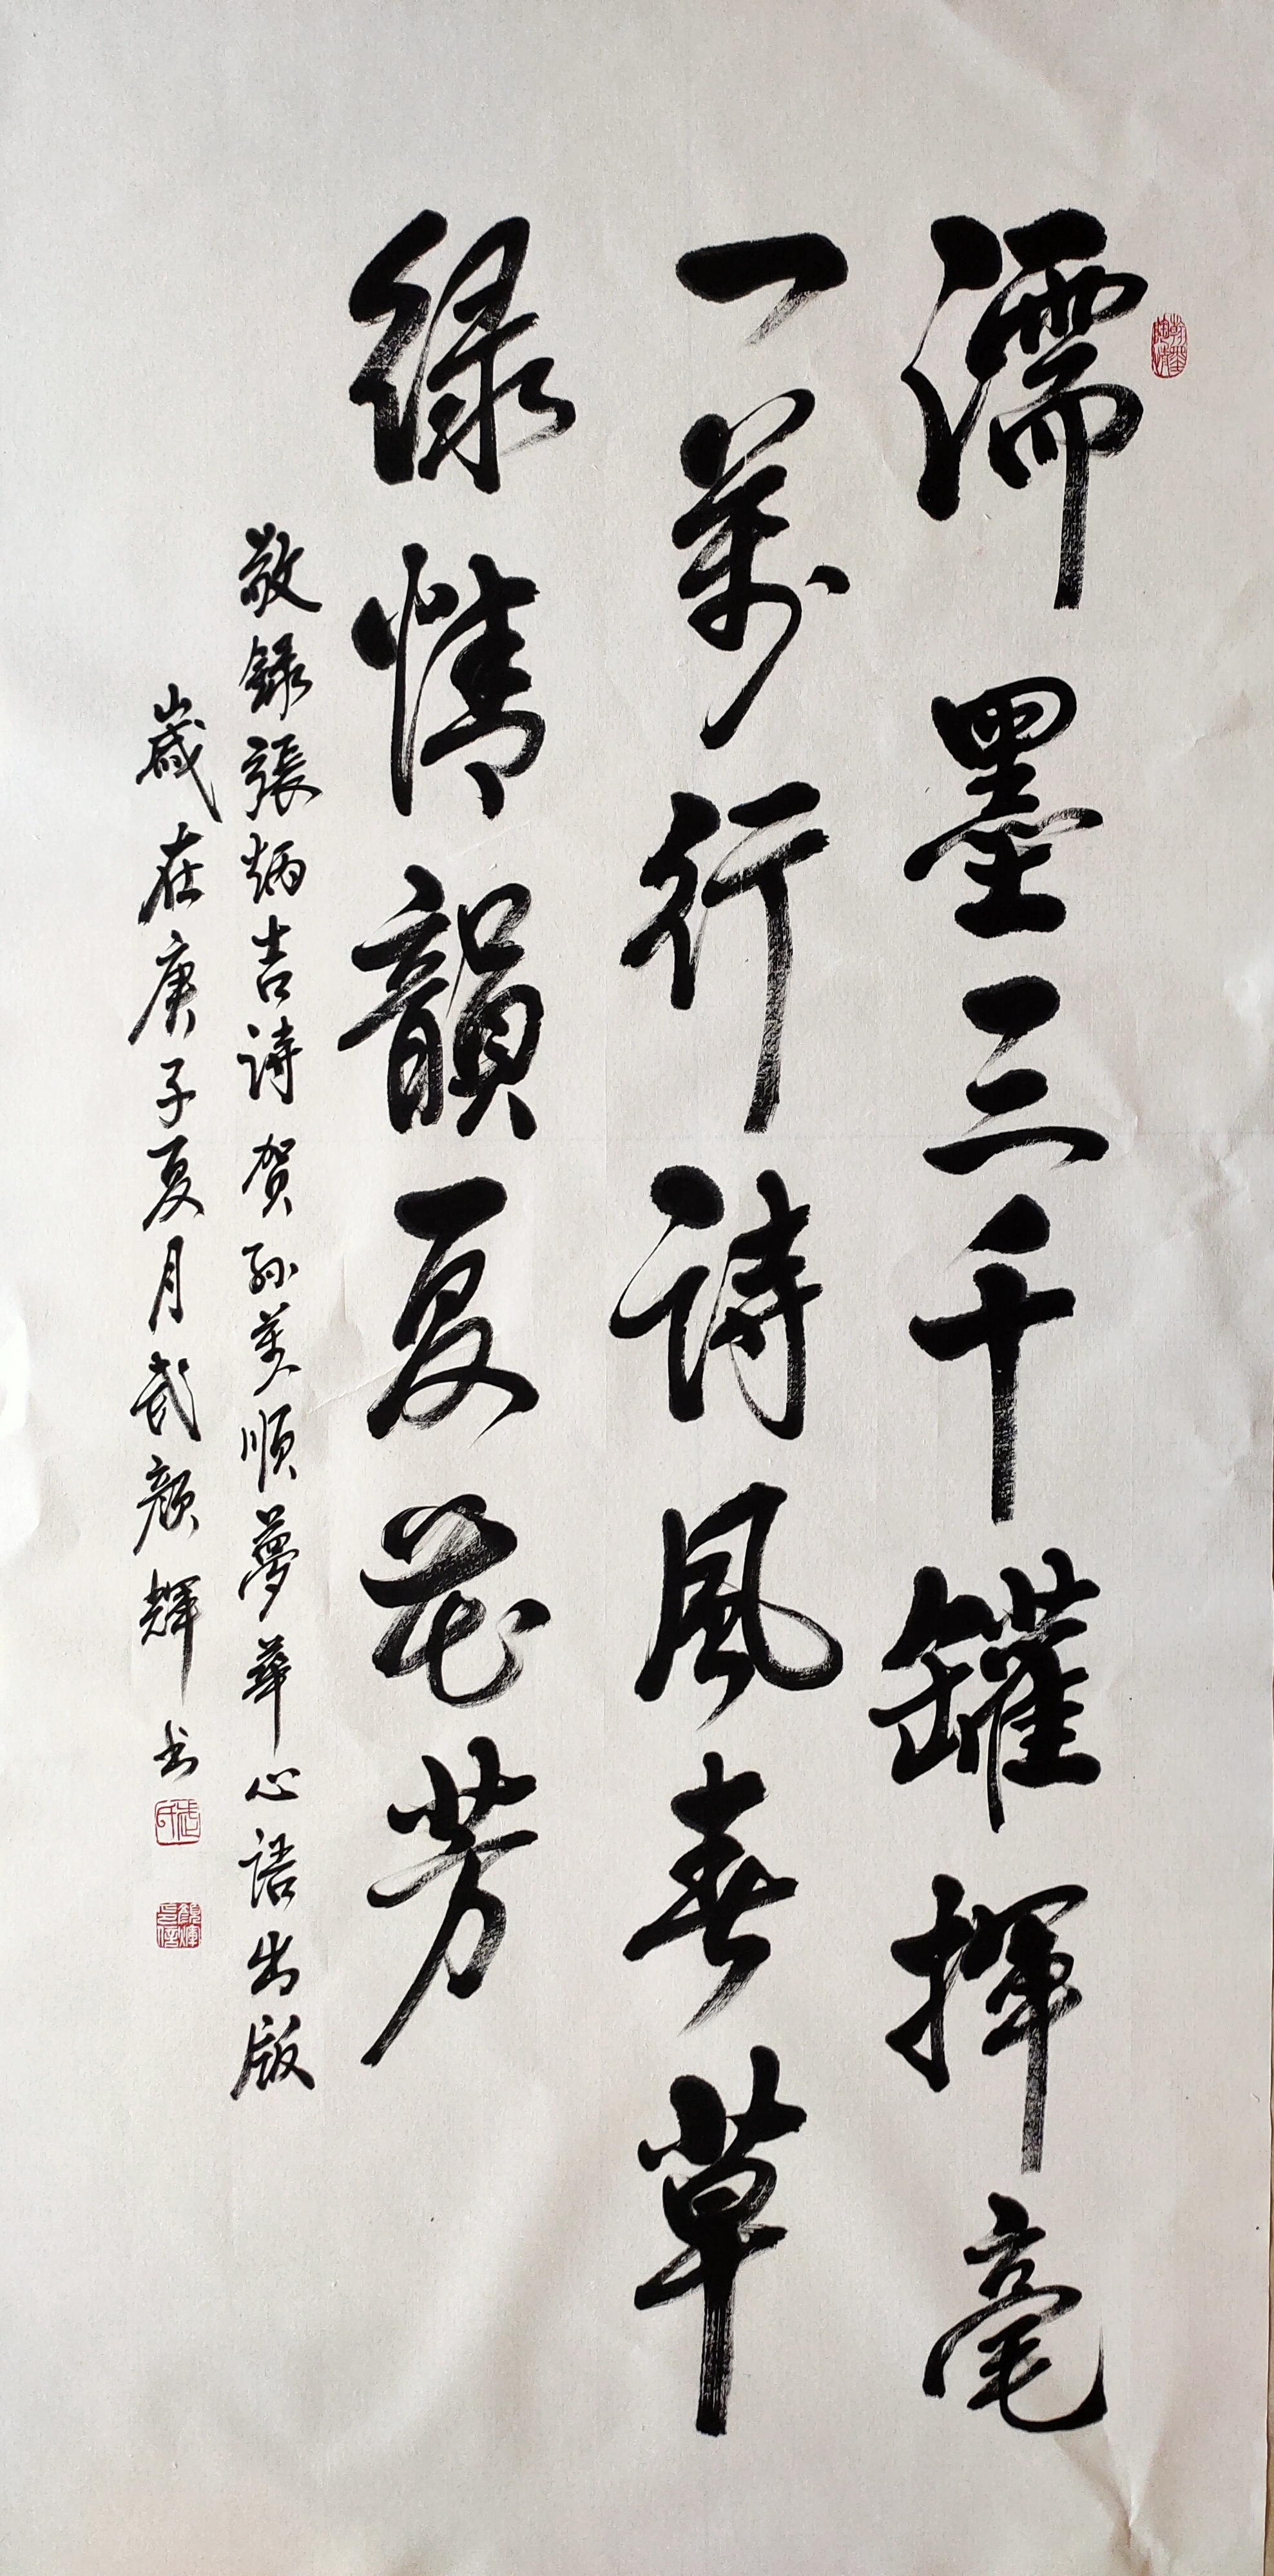 濡墨三千罐揮毫
一萬行詩風春草
緑情韻夏花芳
敬録張炳吉詩賀孫美順夢華心語出版
歲在庚子夏月武顏輝书